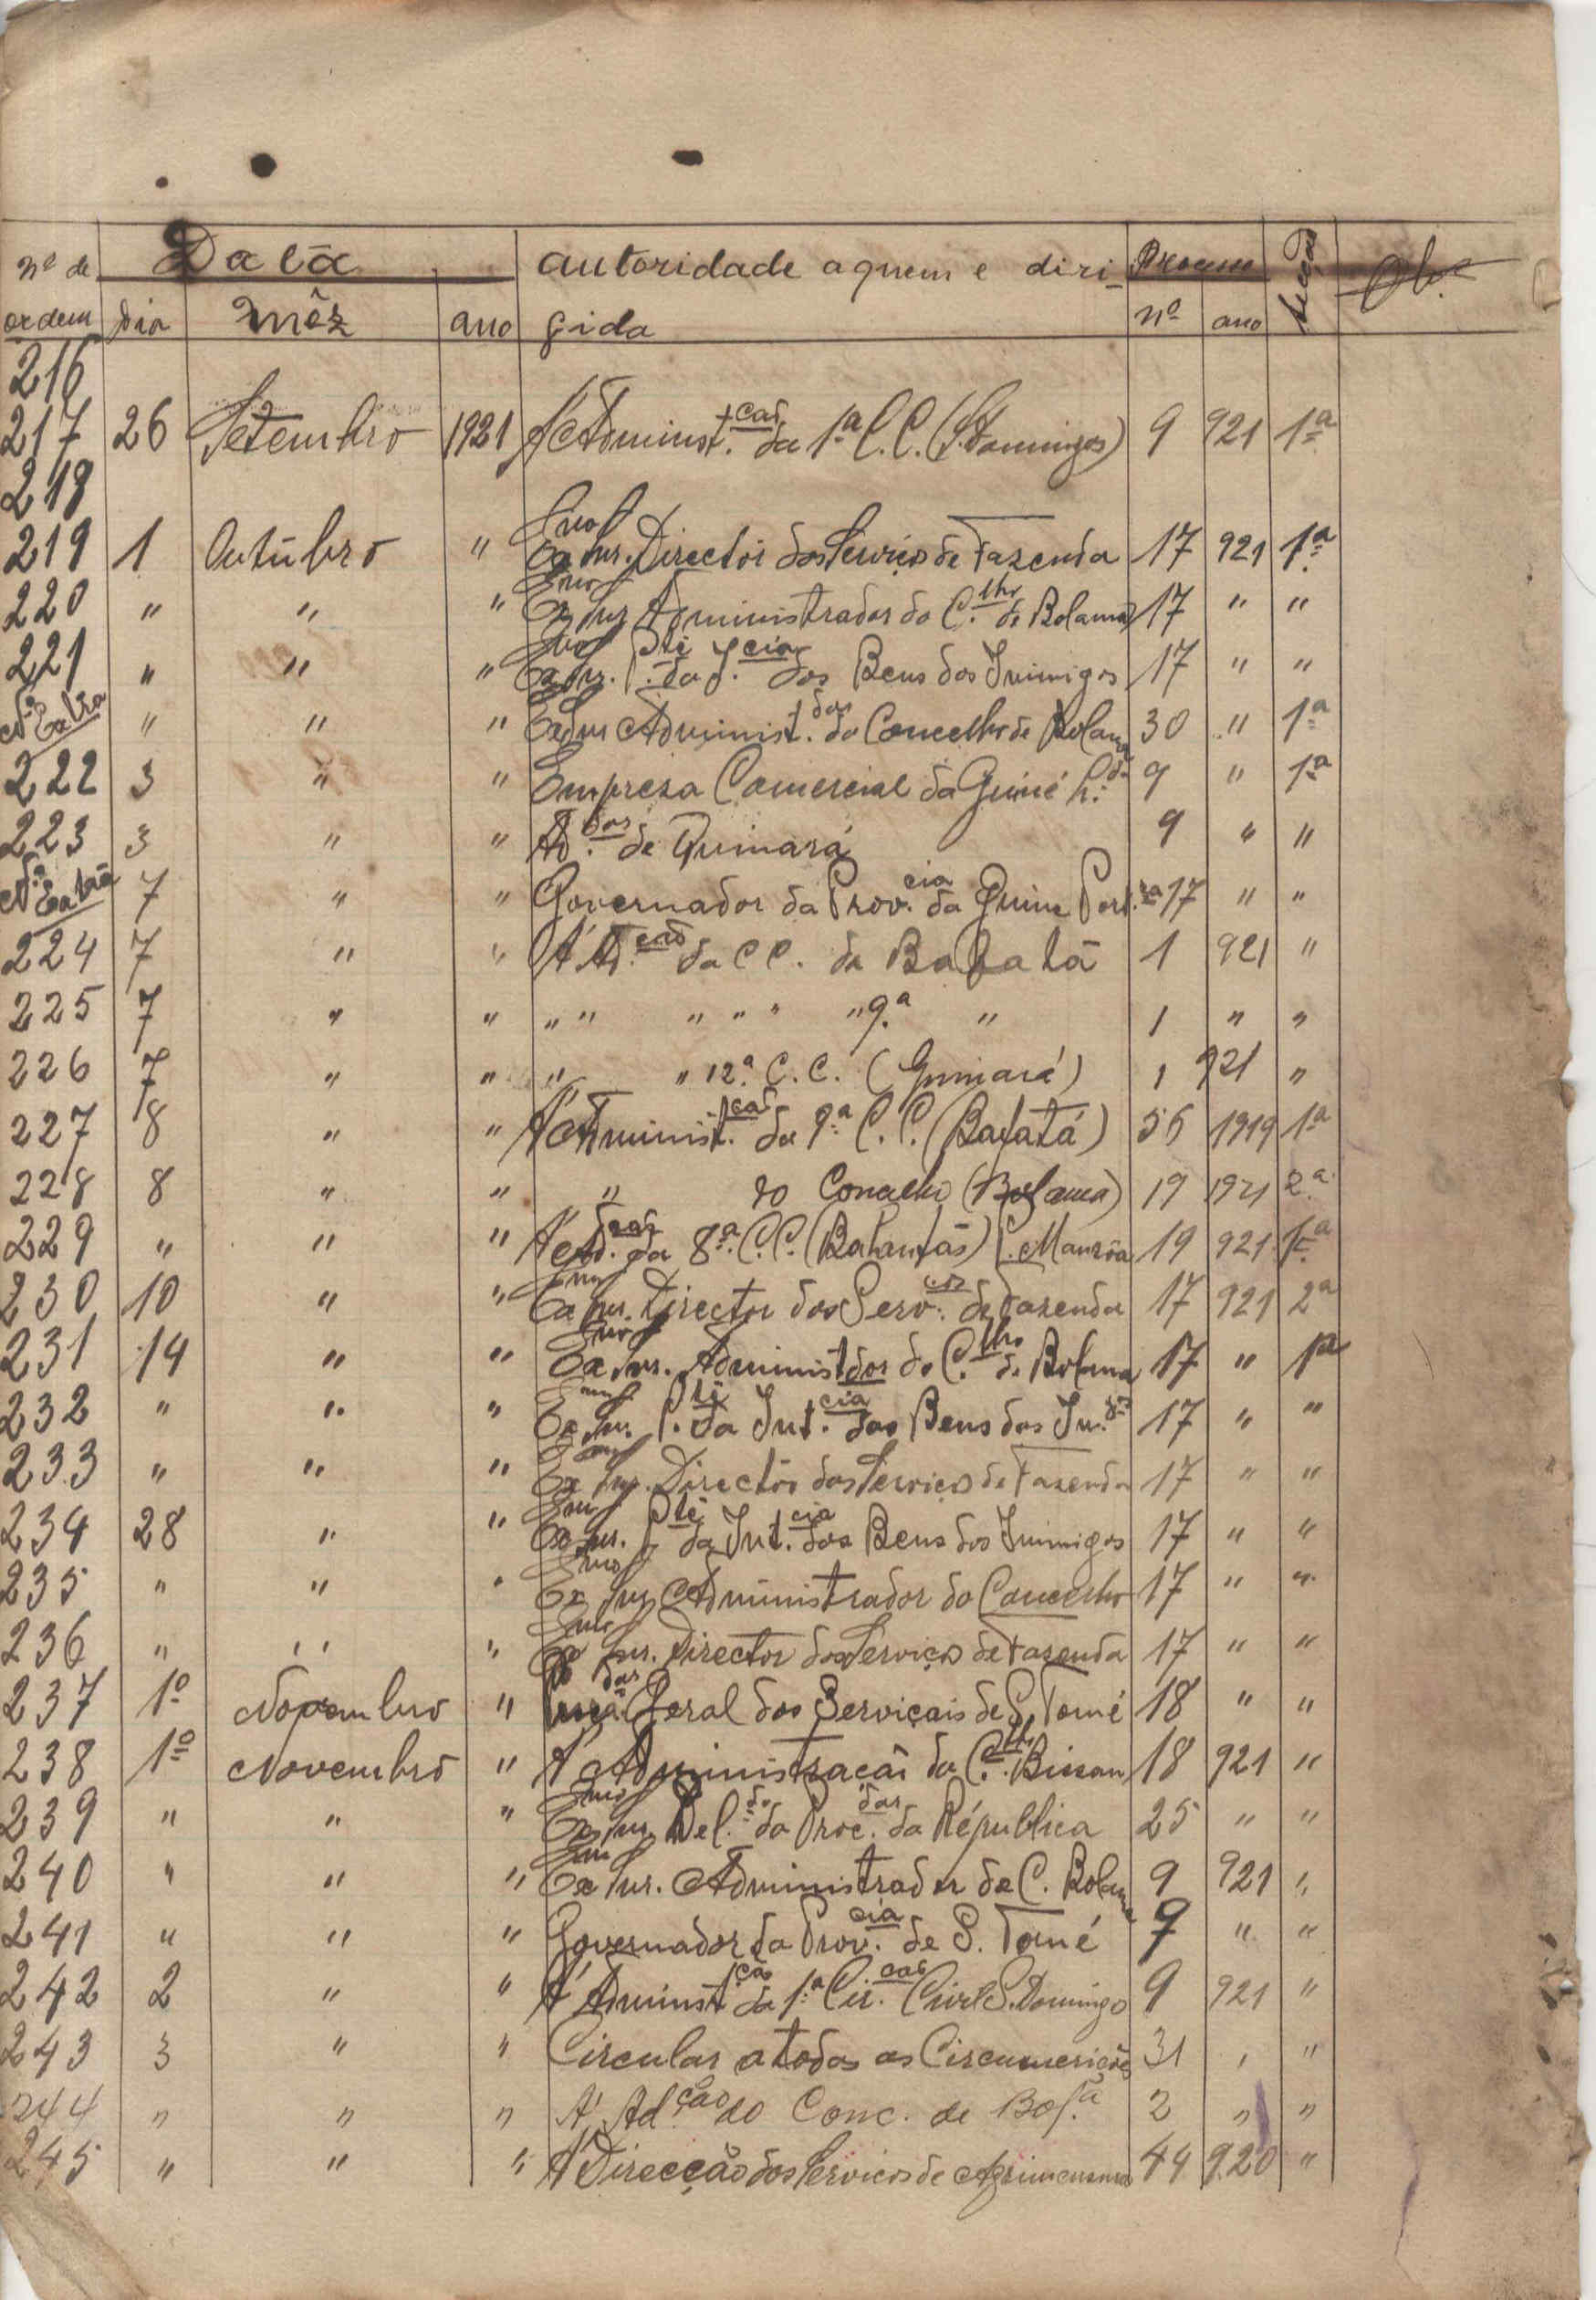 Nº de Data autoridade aquem e diri- Processo Secção Ob.
ordem Dia Mêz ano gida nº ano
216
217 26 Setembro 1921 A' Administ.ção da 1ª C.C. (S. Domingos) 9 921 1ª
218
219 1 Outubro " Exmo Snr. Director dos Serviços de Fazenda 17 921 1ª
220 " " " Exmo Snr Administrador do C.lho de Bolama 17 " "
221 " " " Exmo Snr. P.te da I.cia dos Bens dos Inimigos 17 " "
Nº Extra " " " Snr Administ.dor do Concelho de Bolama 30 " 1ª
222 3 " " Empreza Comercial da Guiné L.da 9 " 1ª
223 3 " " Ad.dor de Quinará 9 " "
Nº Extra 7 " " Governador da Prov.cia da Guine Port.sa 17 " "
224 7 " " A' Ad.ção da CC. de Bafatá 1 921 "
225 7 " " " " " " " " 9.ª " 1 " "
226 7 " " " " 12.ª C.C. (Quinará) 1 921 "
227 8 " " A' Administ.ção da 9ª C.C. (Bafatá) 56 1919 1ª
228 8 " " " do Concelho (Bolama) 19 1921 2ª
229 " " " A' Ad.ção da 8ª C.C. (Balantas) C. Mansôa 19 921 1ª
230 10 " " Exmo Snr. Director dos Serv.ços de Fazenda 17 921 2ª
231 14 " " Exmo Snr. Administdor do C.lho de Bolama 17 " 1ª
232 " " " Exmo Snr. P.te da Int.cia dos Bens dos In.gos 17 " "
233 " " " Exmo Snr. Director dos Serviços de Fazenda 17 " "
234 28 " " Exmo Snr. P.te da Int.cia dos Bens dos Inimigos 17 " "
235 " " " Exmo Snr Administrador do Concelho 17 " "
236 " " " Exmo Snr. Director dos Serviços de Fazenda 17 " "
237 1º Novembro " Geral dos Serviçais de S. Tomé 18 " "
238 1º Novembro " A' Administração do C.lh. Bissau 18 921 "
239 " " " Exmo Snr Del.do do Proc.dor da Républica 25 " "
240 " " " Exmo Snr. Administrador de C. Bolama 9 921 "
241 " " " Governador da Prov.cia de S. Tomé 9 " "
242 2 " " A' Administ.ção da 1.ª Cir.ção Civil S. Domingo 9 921 "
243 3 " " Circular a todas as Circumscrições 31 " "
244 " " " A' Ad.ção do Conc. de Bol.ª 2 " "
245 " " " A' Direcção dos Serviços de Agrimensura 44 920 "